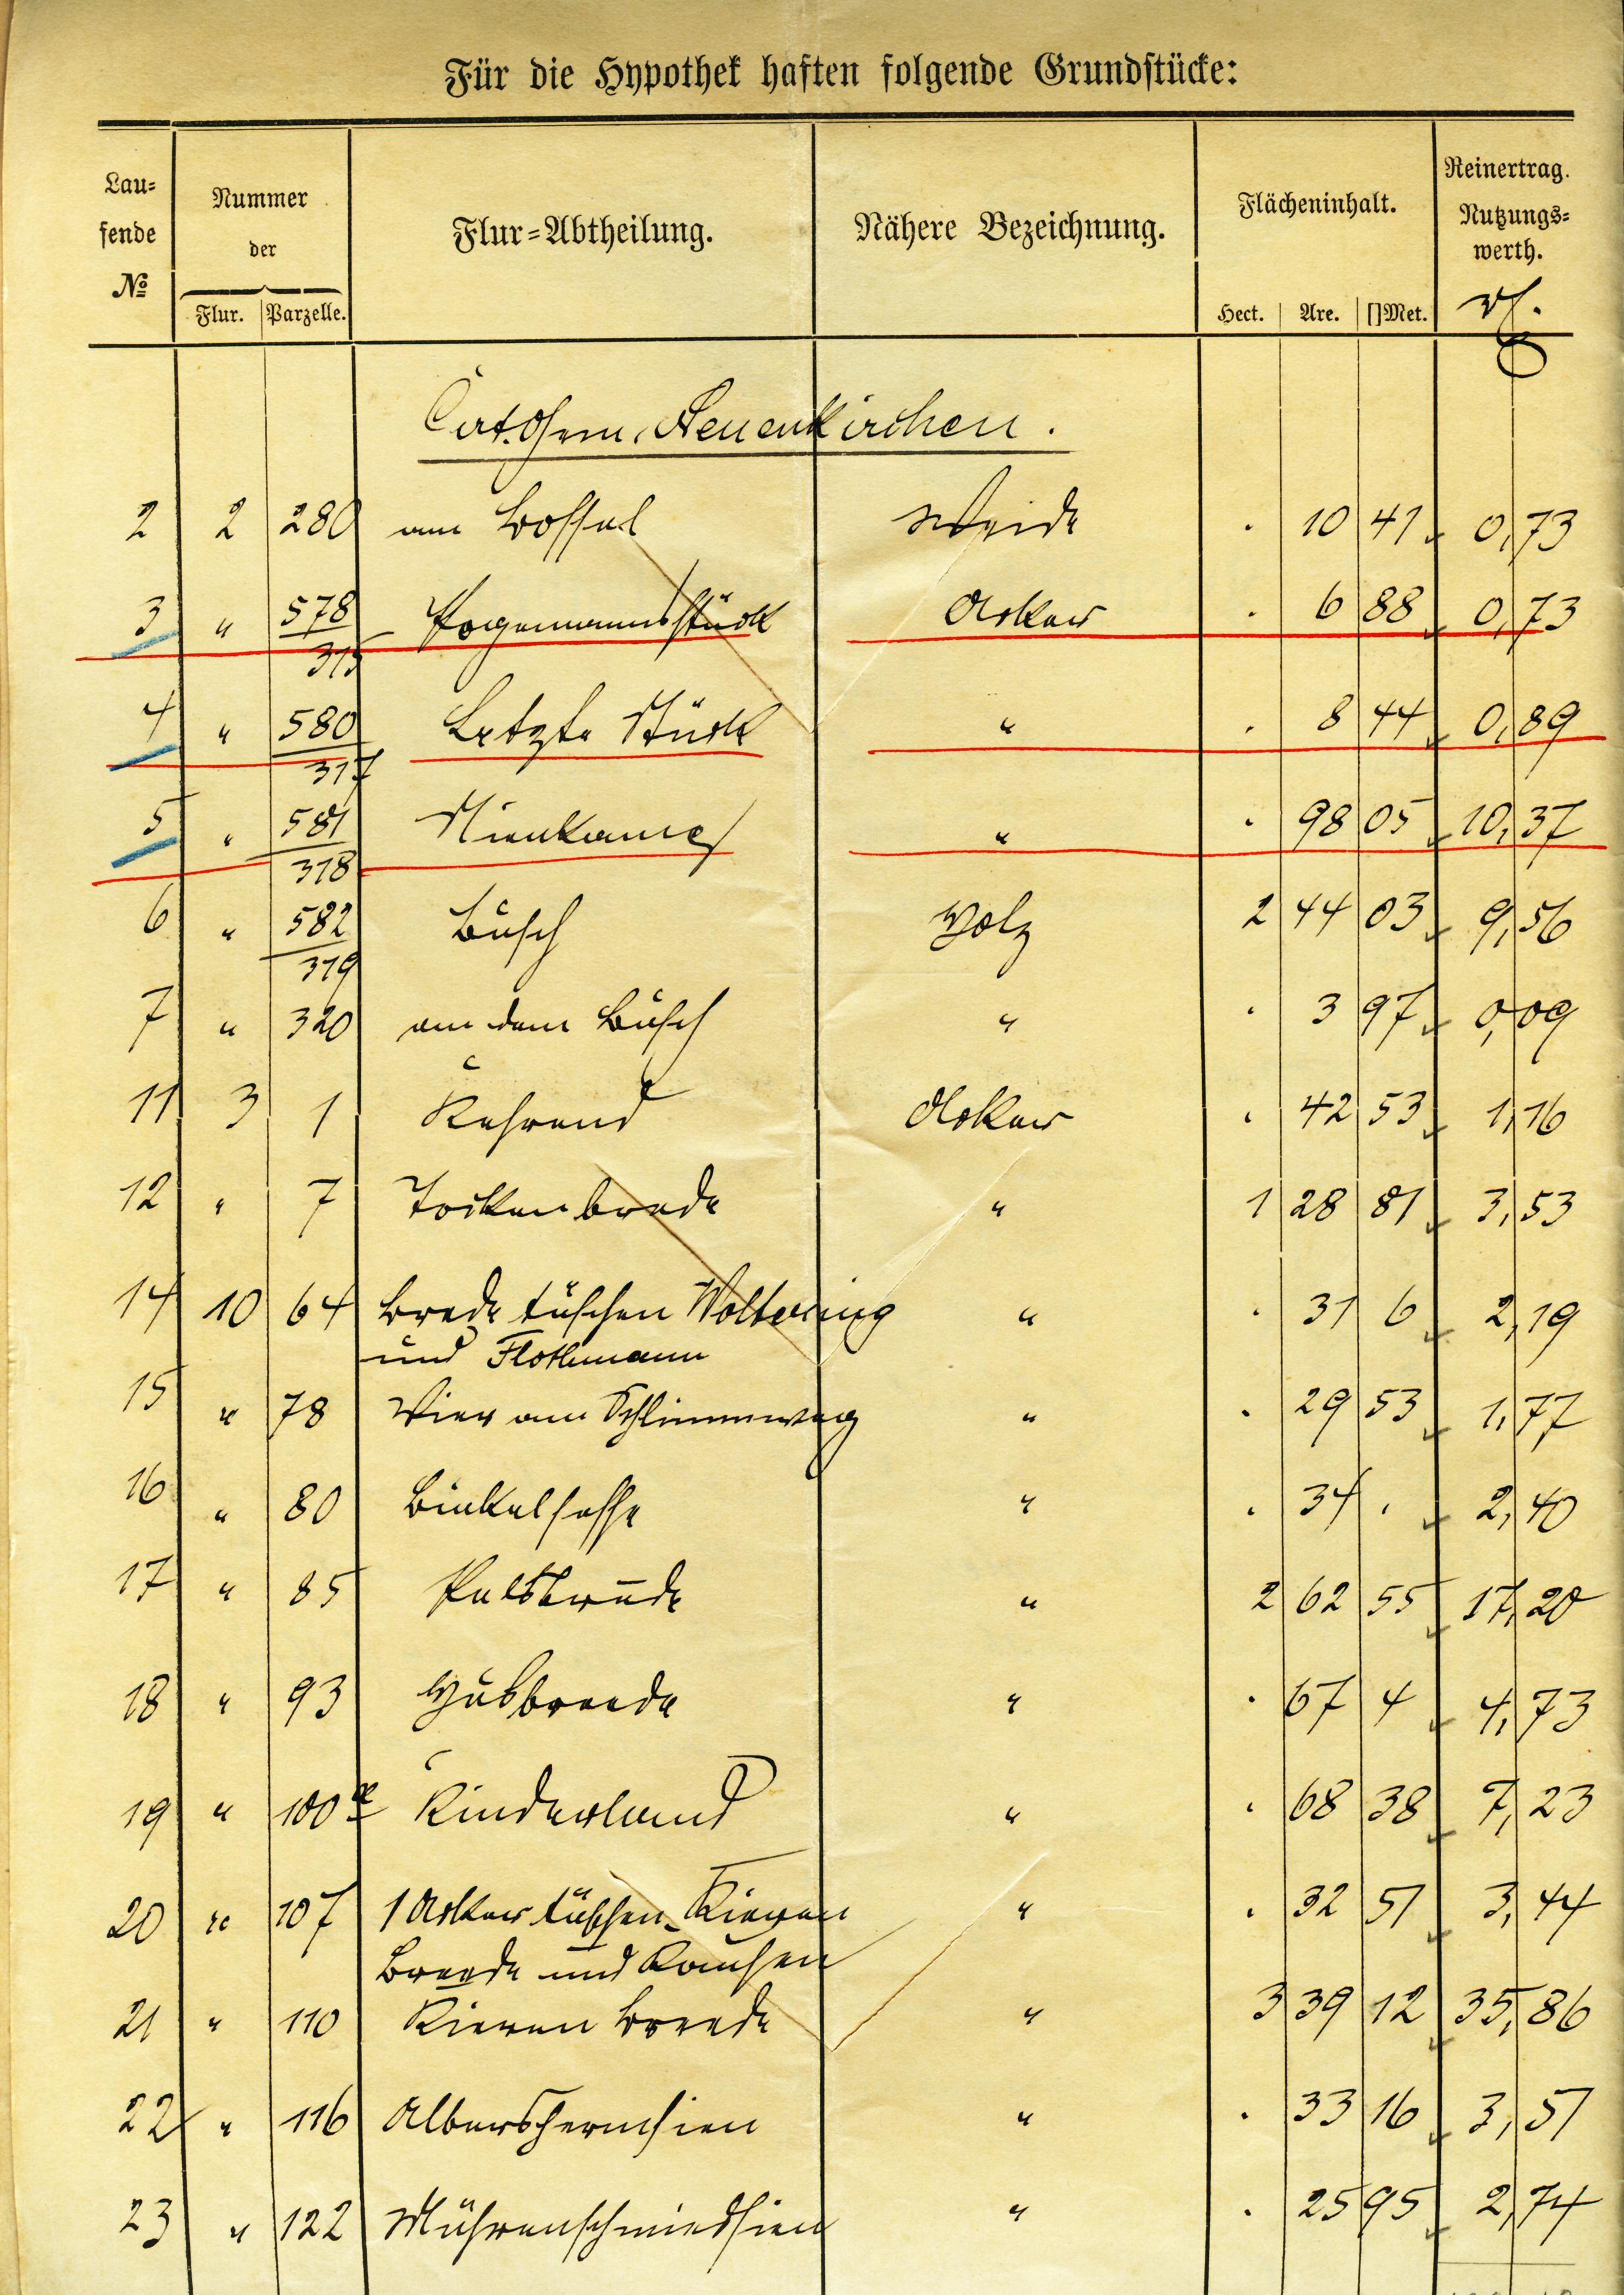 Für die Hypothek haften folgende Grundstücke:
Lau=
fende
№
Nummer
der
Flur. Parzelle.
Flur=Abtheilung.
Nähere Bezeichnung.
Flächeninhalt.
Hect. Are. []Met.
Reinertrag.
Nutzungs=
werth.
Cat. Gem. Neuenkirchen.
2 2 280 am Bossel Weide . 10 41 0,73
3 " 578/315 Hagemannsstück Acker . 6 88 0,73
4 " 580/317 Letzte Stück " . 8 44 0,89
5 " 581/318 Nienkamp " . 98 05 10,37
6 " 582/319 Busch Holz 2 44 03 9,56
7 " 320 an dem Busch " . 3 97 0,09
11 3 1 Kehrend Acker . 42 53 1,16
12 " 7 " 1 28 81 3,53
14 10 64 Brede tüschen Woltering " . 31 6 2,19
und Flothmann
15 " 78 Vier am Schlimmweg " . 29 53 1,77
16 " 80 " . 34 . 2,40
17 " 85 " 2 62 55 17,20
18 " 93 Husbreede " . 67 4 4,73
19 " 100a Kinderland " . 68 38 7,23
20 " 107 1 Acker tüschen Kieven " . 32 51 3,44
Breede und
21 " 110 Kieven Breede " 3 39 12 35,86
22 " 116 " . 33 16 3,51
23 " 122 " . 25 95 2,74